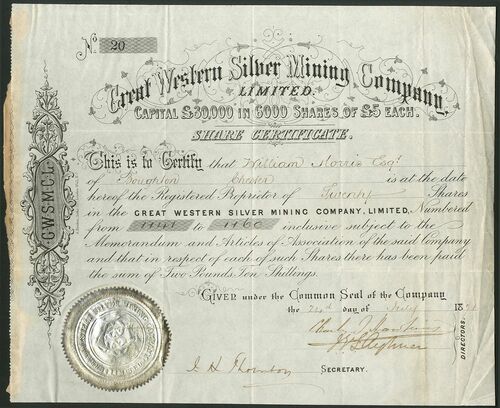 No 20
Great Western Silver Mining Company,
LIMITED.
CAPITAL £30,000 IN 6000 SHARES OF £5 EACH.
SHARE CERTIFICATE.
This is to Certify that William Morris Esqr
of Boughton Chester is at the date
hereof the Registered Proprietor of Twenty Shares
in the GREAT WESTERN SILVER MINING COMPANY, LIMITED, Numbered
from 1141 to 1160 inclusive subject to the
Memorandum and Articles of Association of the said Company
and that in respect of each of such Shares there has been paid
the sum of Two Pounds Ten Shillings.
GIVEN under the Common Seal of the Company
the day of July 18
DIRECTORS.
SECRETARY.
G.W.S.M.C.L.